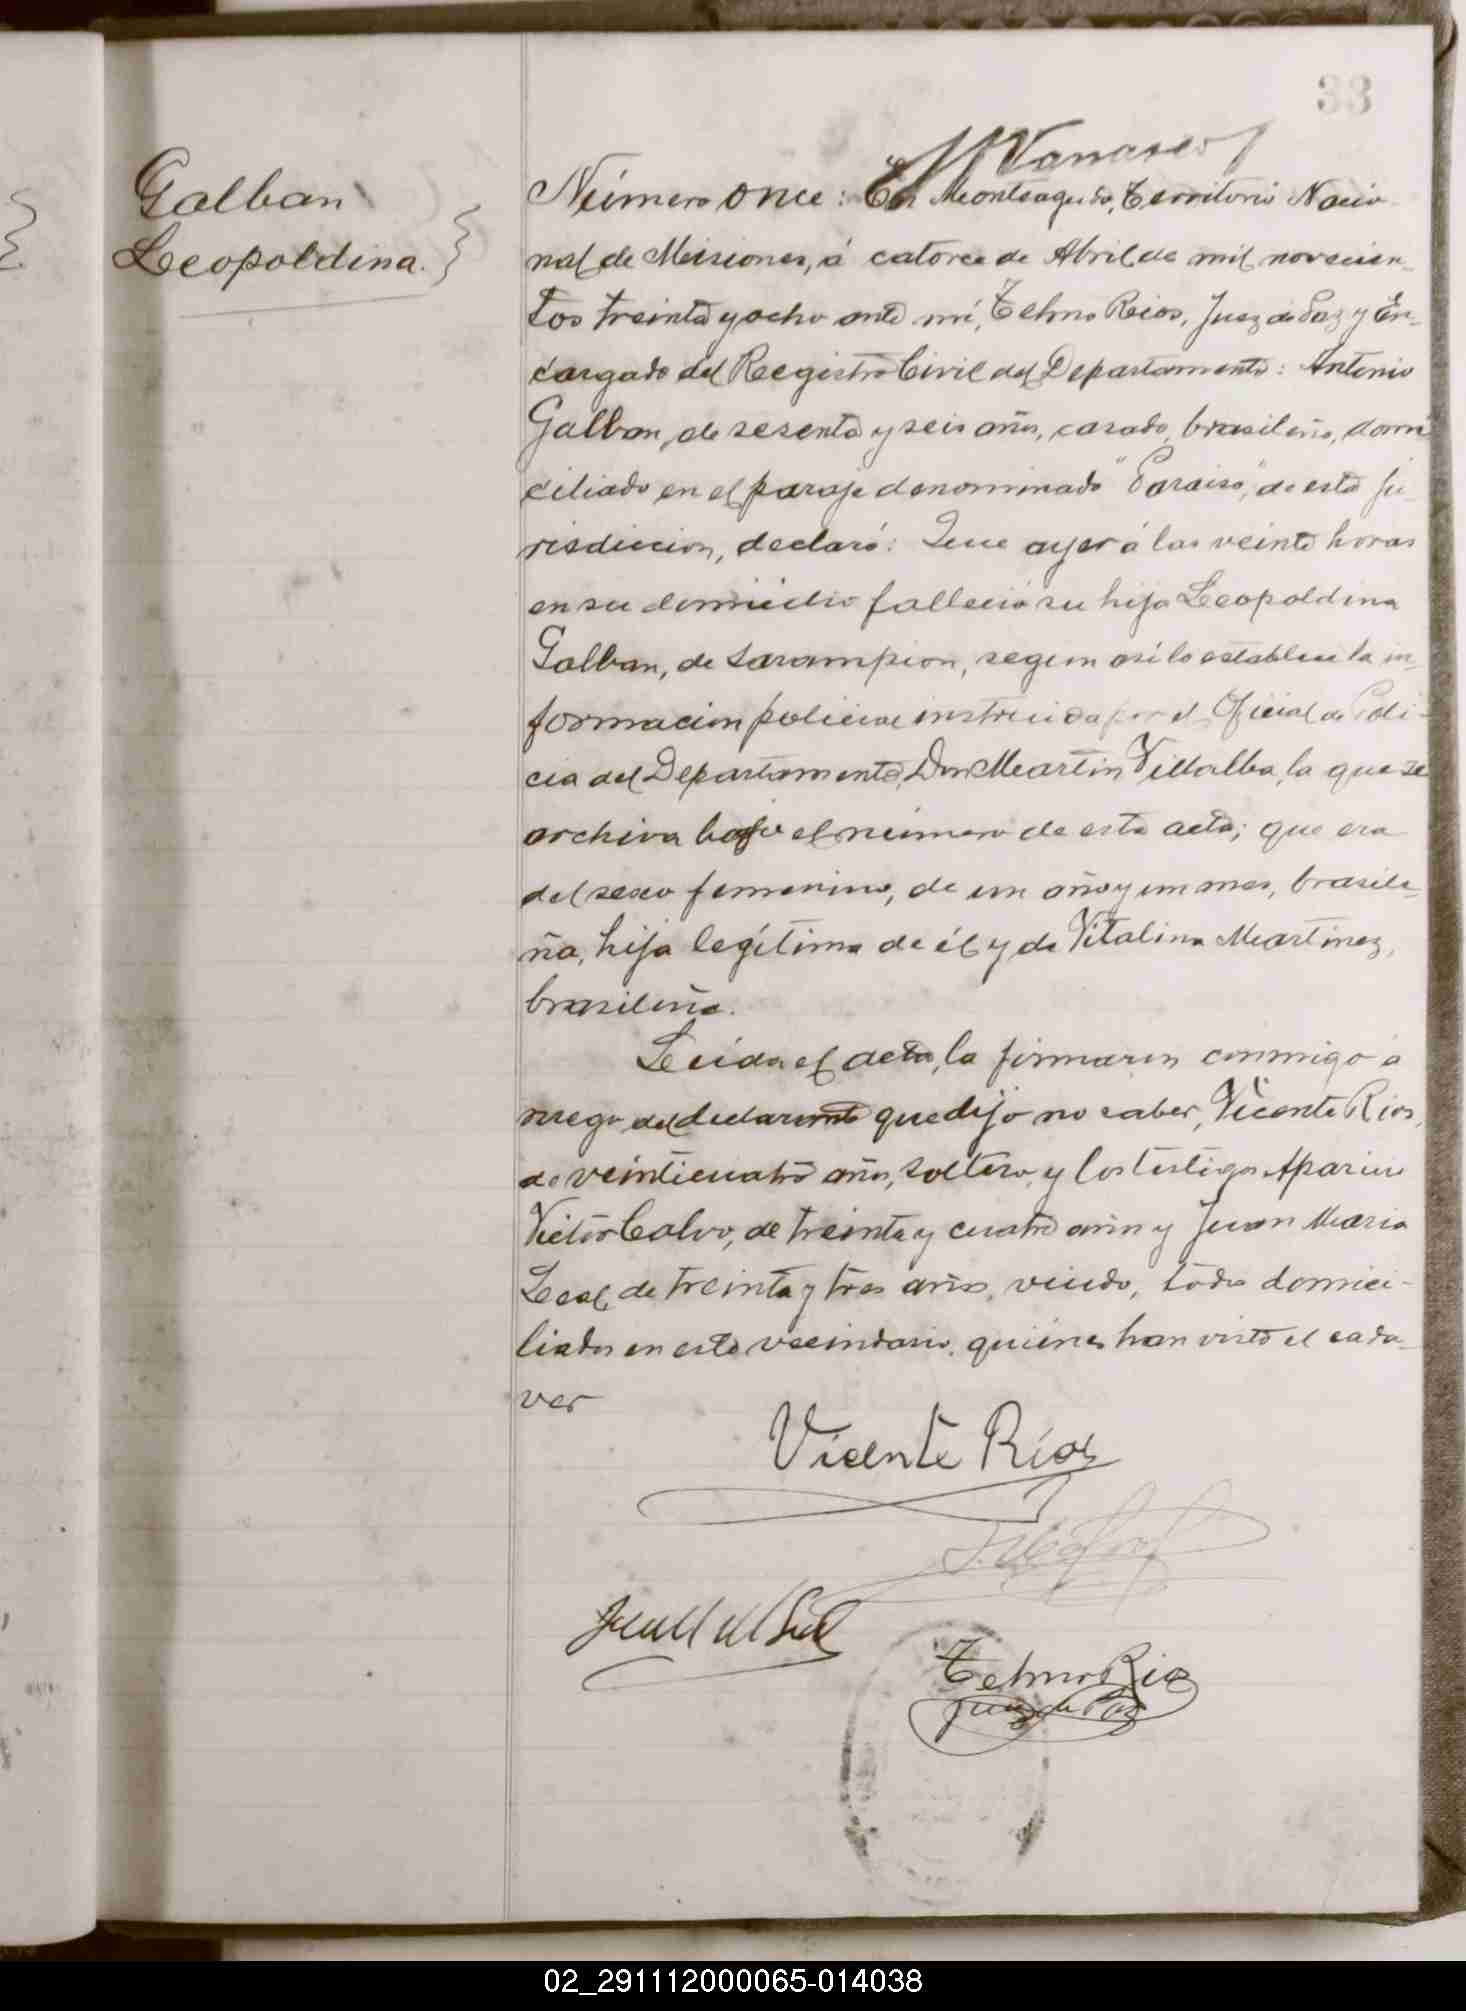 33
Galban
Leopoldina.
Número once: En Monteagudo, Territorio Nacio-
nal de Misiones, á catorce de Abril de mil novecien-
tos treinta y ocho ante mí, Telmo Rios, Juez de Paz y En-
cargado del Registro Civil del Departamento: Antonio
Galban, de sesenta y seis años, casado, brasileño, domi
ciliado en el paraje denominado "Paraiso", de esta ju-
risdiccion, declaró: Que ayer á las veinte horas
en su domicilio falleció su hija Leopoldina
Galban, de sarampion, segun así lo establece la in-
formacion policial instruida por el Oficial de Poli-
cia del Departamento, Don Martin Villalba, la que se
archiva bajo el número de esta acta; que era
del sexo femenino, de un año y un mes, brasile-
ña, hija legítima de él y de Vitalina Martinez,
brasileña.
Leida el acta, la firmaron conmigo á
ruego del declarante que dijo no saber, Vicente Rios,
de veinticuatro años, soltero, y los testigos Aparicio
Victor Calvo, de treinta y cuatro años y Juan Maria
Leal, de treinta y tres años, viudo, todos domici-
liados en este vecindario, quiénes han visto el cada-
ver
Vicente Ríos
Telmo Rios
Juez de Paz
02_291112000065-014038